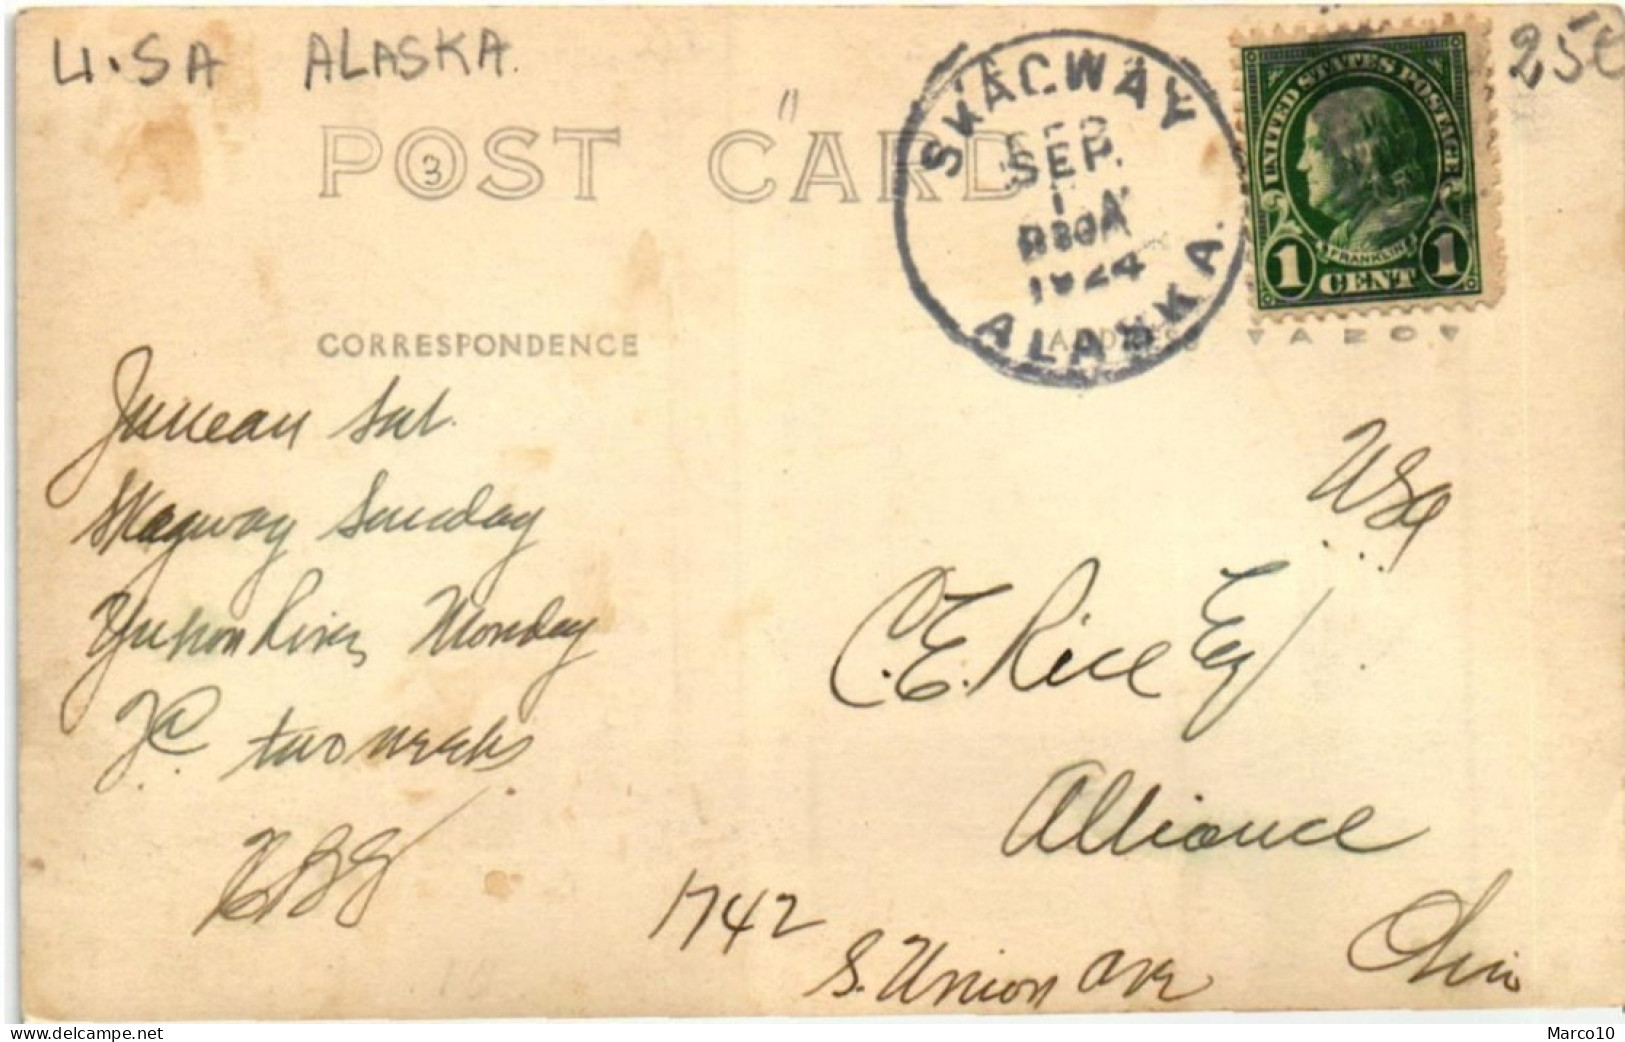 U.SA ALASKA.
25€
POST CARD
3
SKAGWAY
SEP.
1
830A
1924
ALASKA.
UNITED STATES POSTAGE
FRANKLIN
1 CENT 1
CORRESPONDENCE
ADDRESS
AZO
Juneau Sat.
Skagway Sunday
Yukon River Monday
two weeks
USA
C. E. Rice Esq
Alliance
Ohio
1742
S. Union Ave
www.delcampe.net
Marco10